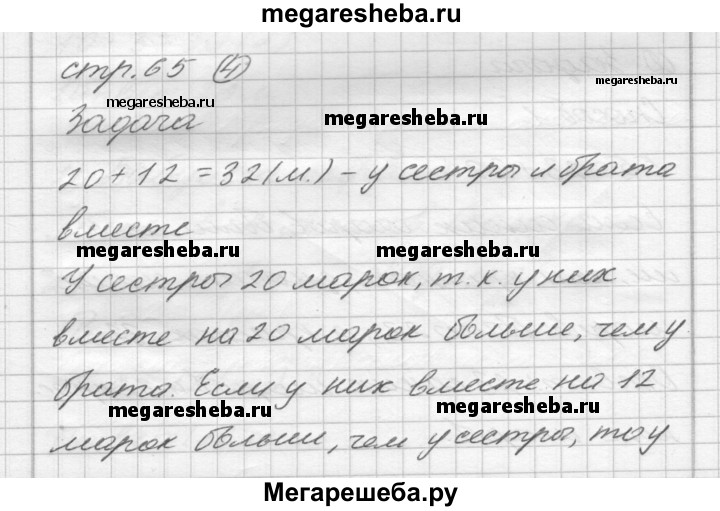 megaresheba.ru
стр. 65 4
megaresheba.ru
megaresheba.ru
Задача
megaresheba.ru
20 + 12 = 32 (м.) – у сестры и брата
вместе
megaresheba.ru megaresheba.ru
У сестры 20 марок, т. к. у них
вместе на 20 марок больше, чем у
брата. Если у них вместе на 12
megaresheba.ru megaresheba.ru
марок больши, чем у сестры, то у
Мегарешеба.ру